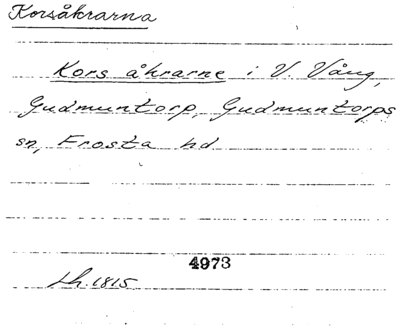 Korsåkrarna
Kors åkrarne i V. Vång,
Gudmuntorp, Gudmuntorps
sn, Frosta hd
4973
Lh. 1815